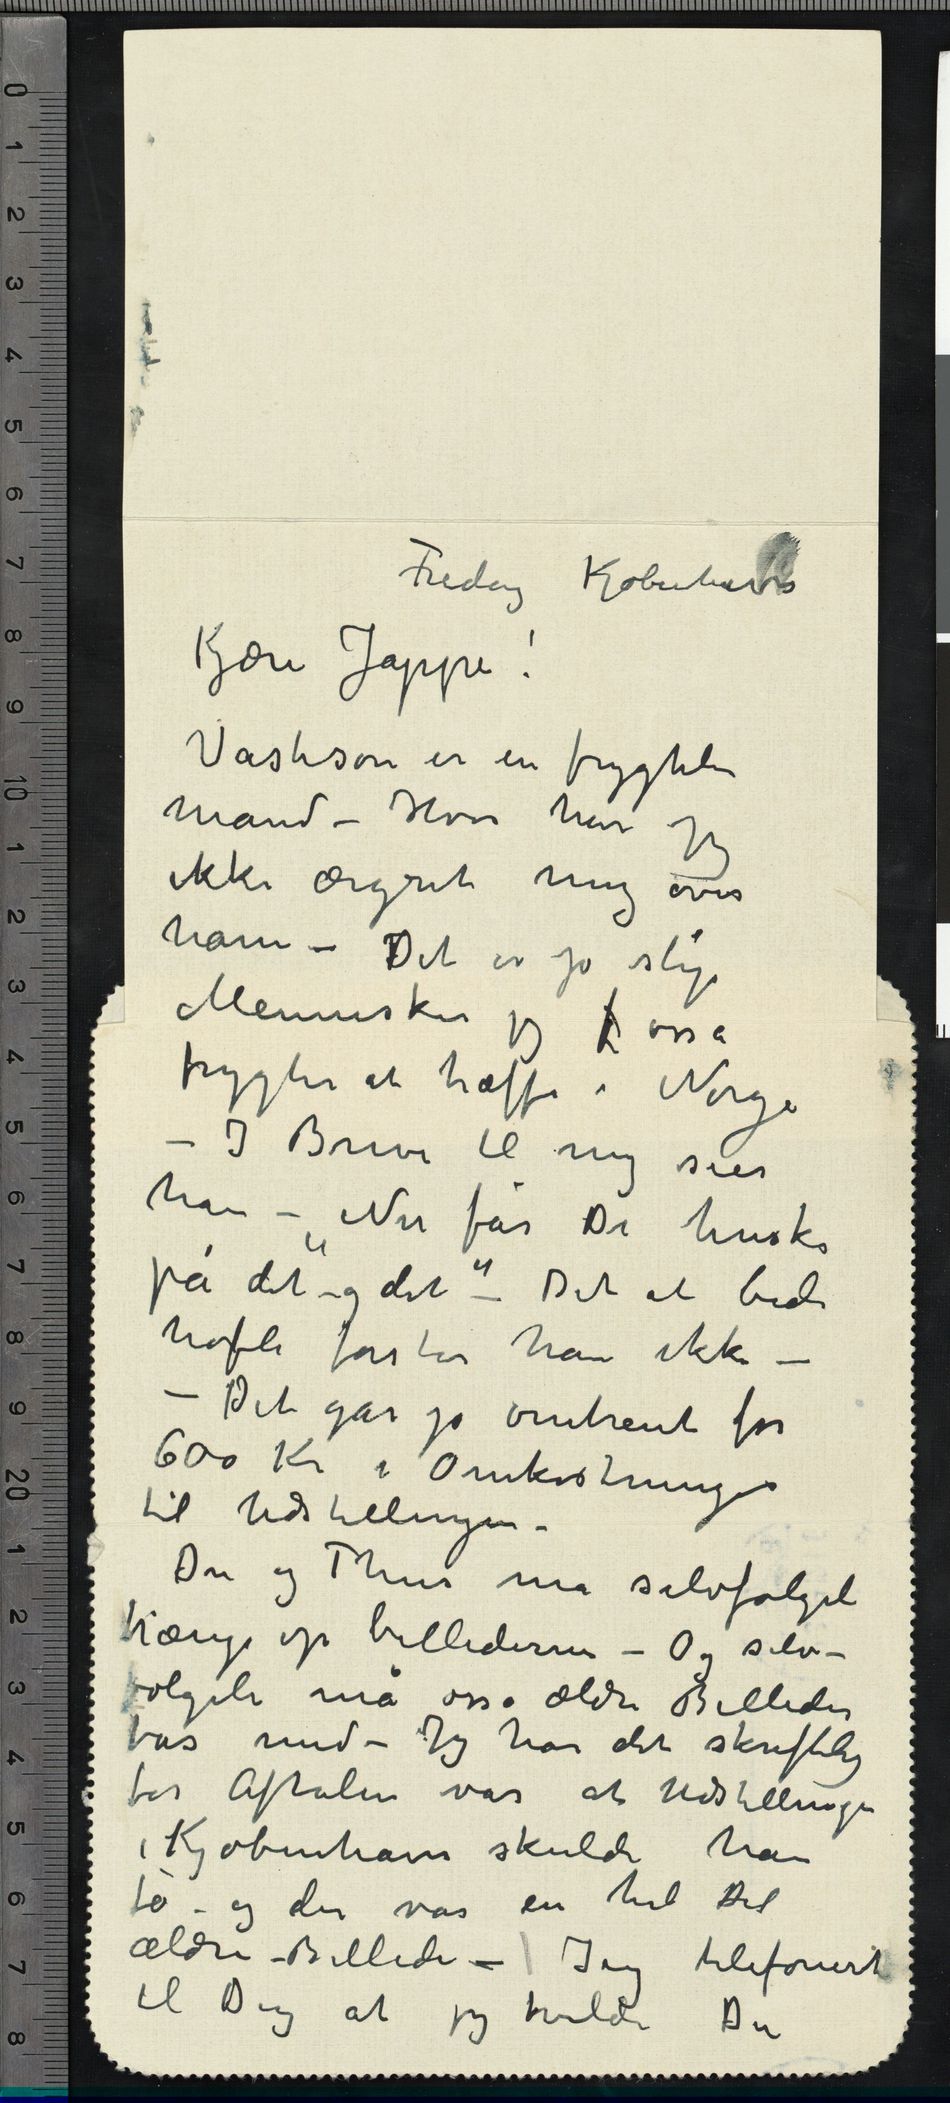 Fredag Kjøbenhavn
Kjære Jappe!
Vasteson er en frygtelig
mand – Hvor har jeg
ikke ærgret mig over
ham – Det er jo slige
Mennesker jeg osså
frygter at træffe i Norge
– I Breve til mig sier
han – „Nu får De huske
på det og det" – Det at bede
høfli forstår han ikke –
– Det går jo omtrent for
600 Kr i Omkostninger
til Udstillingen –
Du og Thiis må selvfølgeli
hænge op billederne – Og selv-
følgeli må osså ældre Billeder
tas med – Jeg har det skriftlig
for Aftalen var at Udstillingen
i Kjøbenhavn skulde han
få – og der var en hel Del
ældre Billeder – Jeg telefonerte
til Dig at jeg vilde Du